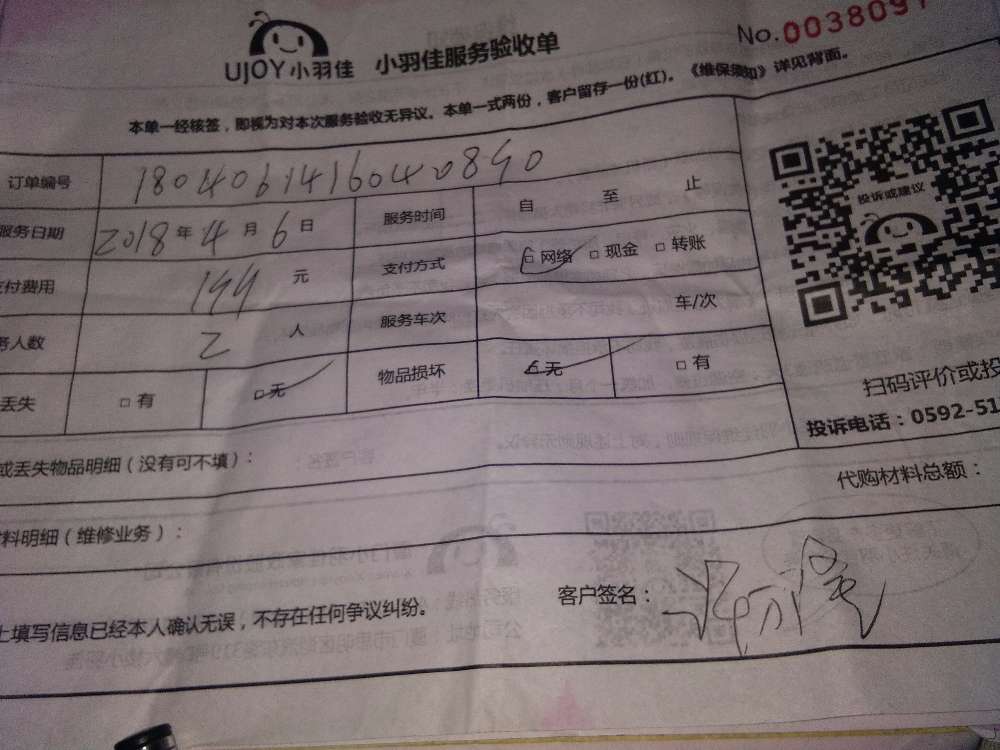 UJOY小羽佳 小羽佳服务验收单
No.003809
本单一经核签，即视为对本次服务验收无异议。本单一式两份，客户留存一份(红)。《维保须知》详见背面。
订单编号 18040614160420890
服务日期 2018年4月6日 服务时间 自 至 止
付费用 199元 支付方式 □网络 □现金 □转账
务人数 2人 服务车次 车/次
丢失 □有 □无 物品损坏 □无 □有
投诉或建议
扫码评价或投
投诉电话：0592-51
或丢失物品明细（没有可不填）：
代购材料总额：
料明细（维修业务）：
客户签名：
上填写信息已经本人确认无误，不存在任何争议纠纷。